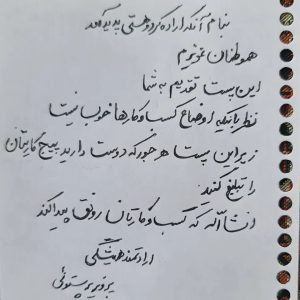 بنام آنکه اراده کرد و هستی پدید آمد
هموطنان عزیزم
این پست تقدیم به شما
نظر باینکه اوضاع کسب و کارها خوب نیست
زیر این پست هر جور که دوست دارید پیج کارتان
را تبلیغ کنید
انشااله که کسب و کارتان رونق پیدا کند
ارادتمند همیشگی
پرویز پرستوئی